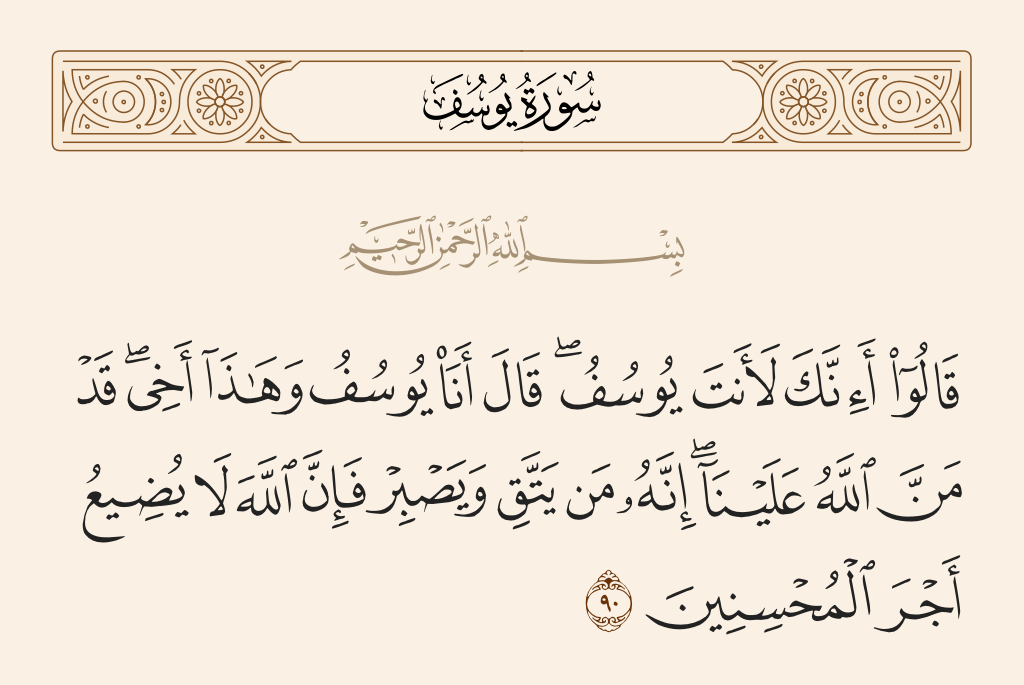 سُورَةُ يُوسُفَ
بِسْمِ ٱللَّهِ ٱلرَّحْمَٰنِ ٱلرَّحِيمِ
قَالُوٓا۟ أَءِنَّكَ لَأَنتَ يُوسُفُ ۖ قَالَ أَنَا۠ يُوسُفُ وَهَـٰذَآ أَخِى ۖ قَدْ
مَنَّ ٱللَّهُ عَلَيْنَآ ۖ إِنَّهُۥ مَن يَتَّقِ وَيَصْبِرْ فَإِنَّ ٱللَّهَ لَا يُضِيعُ
أَجْرَ ٱلْمُحْسِنِينَ ٩٠